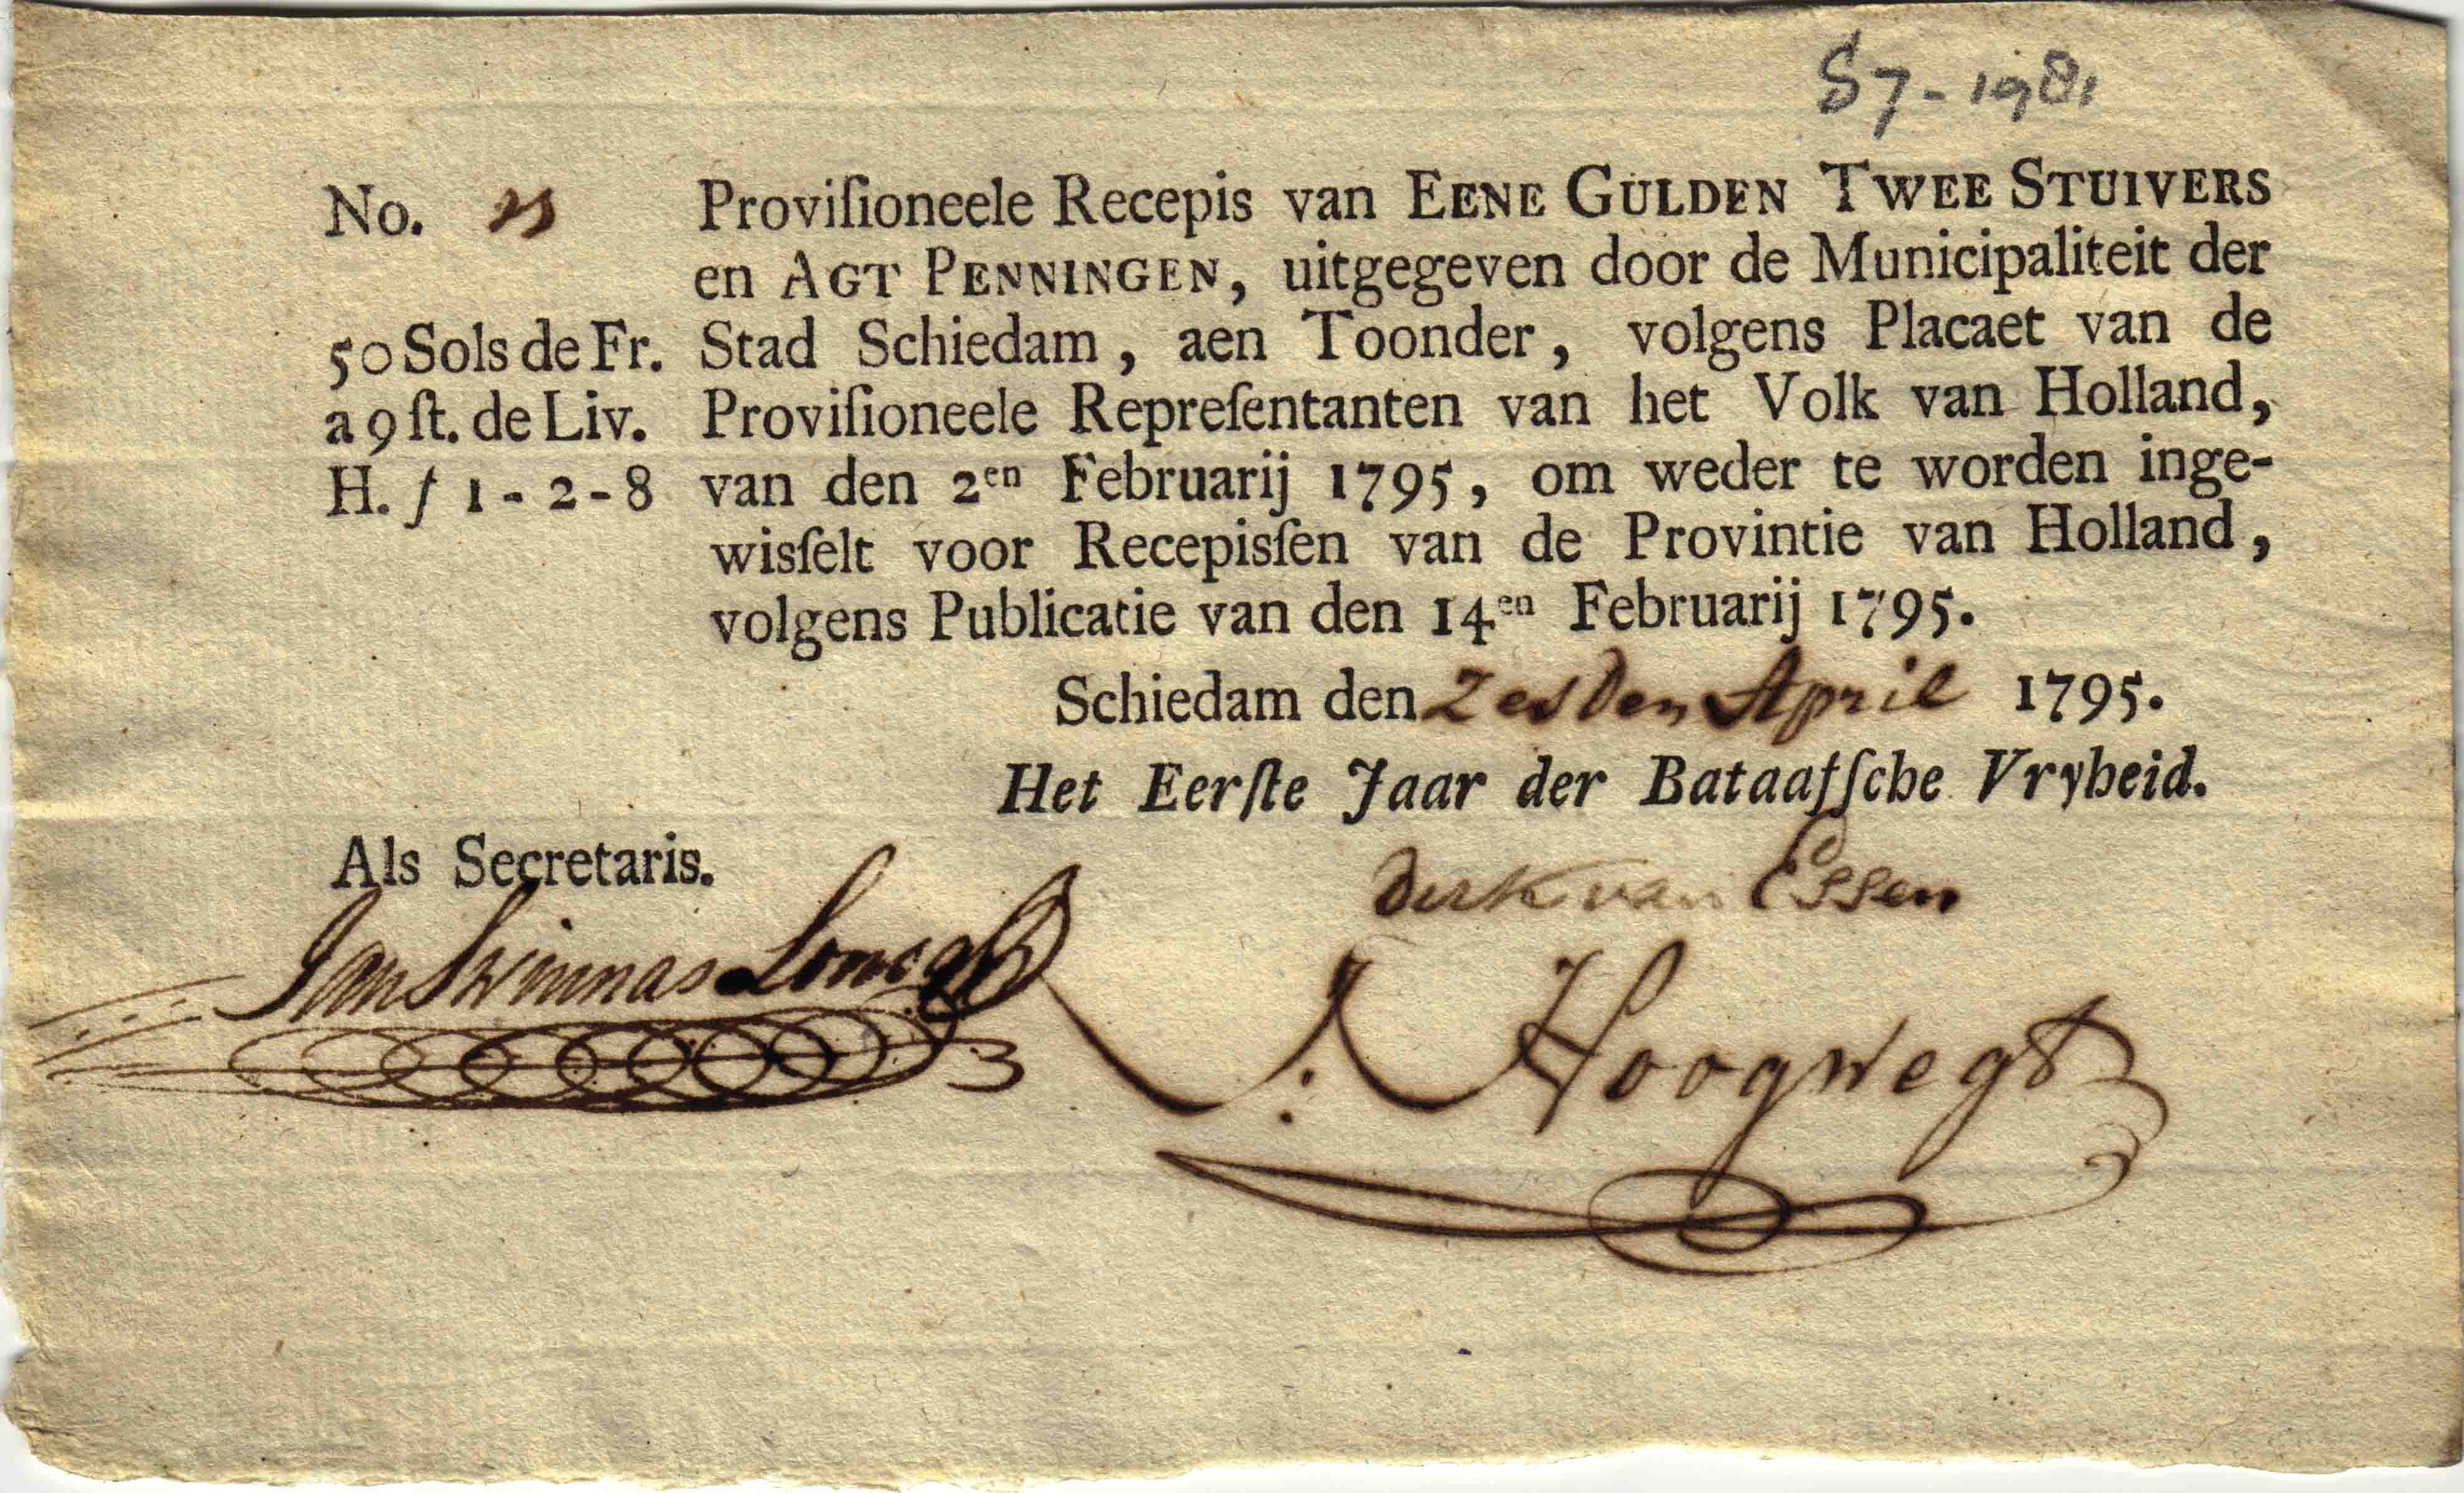 S7-1981
No. 25 Proviſioneele Recepis van EENE GULDEN TWEE STUIVERS
en AGT PENNINGEN, uitgegeven door de Municipaliteit der
50 Sols de Fr. Stad Schiedam, aen Toonder, volgens Placaet van de
a 9 ſt. de Liv. Proviſioneele Repreſentanten van het Volk van Holland,
H. ƒ 1-2-8 van den 2en Februarij 1795, om weder te worden inge-
wisſelt voor Recepisſen van de Provintie van Holland,
volgens Publicatie van den 14en Februarij 1795.
Schiedam den Zesden April 1795.
Het Eerſte Jaar der Bataafſche Vryheid.
Als Secretaris.
Dirk van Essen
Jan
J. Hoogwegt